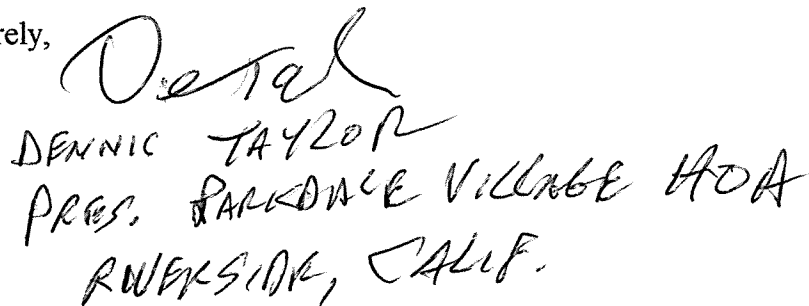 rely,
DENNIS TAYLOR
PRES. PARKDALE VILLAGE HOA
RIVERSIDE, CALIF.